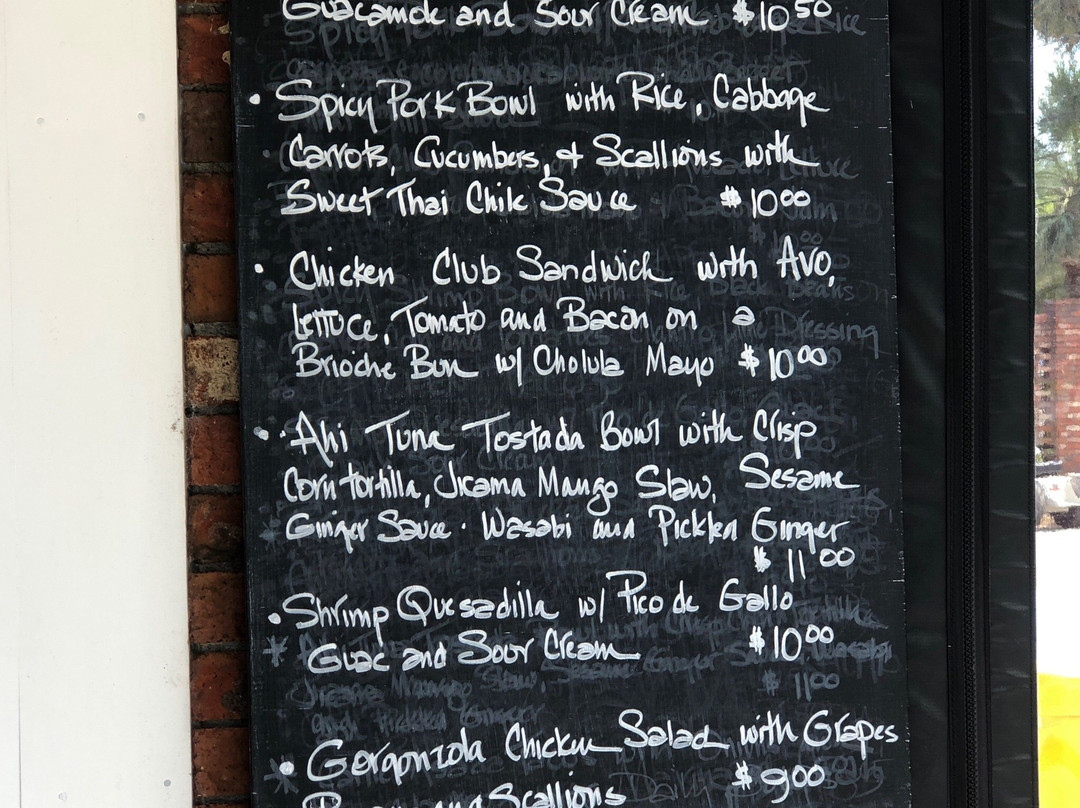 Guacamole and Sour Cream $10 50
• Spicy Pork Bowl with Rice, Cabbage
Carrots, Cucumbers, & Scallions with
Sweet Thai Chile Sauce $10 00
• Chicken Club Sandwich with Avo,
Lettuce, Tomato and Bacon on a
Brioche Bun w/ Cholula Mayo $10 00
• Ahi Tuna Tostada Bowl with Crisp
Corn tortilla, Jicama Mango Slaw, Sesame
Ginger Sauce · Wasabi and Pickled Ginger
$11 00
• Shrimp Quesadilla w/ Pico de Gallo
Guac and Sour Cream $10 00
• Gorgonzola Chicken Salad with Grapes
and Scallions $9 00